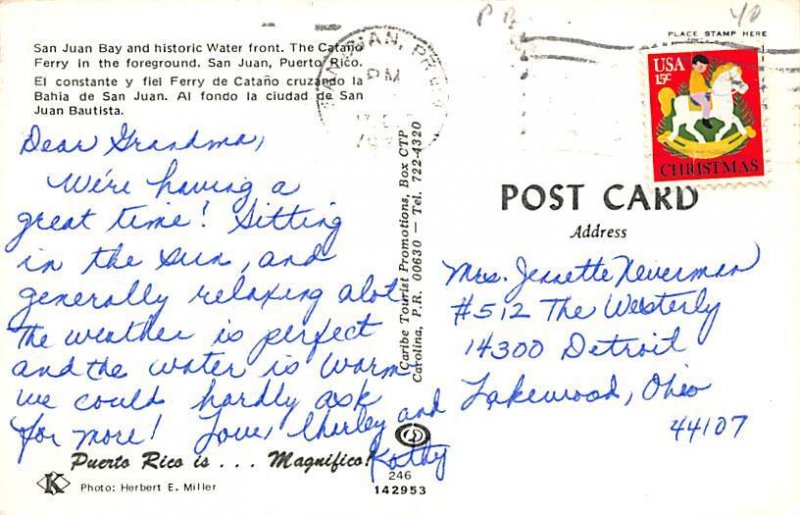 San Juan Bay and historic Water front. The Cataño
Ferry in the foreground. San Juan, Puerto Rico.
El constante y fiel Ferry de Cataño cruzando la
Bahia de San Juan. Al fondo la ciudad de San
Juan Bautista.
Dear Grandma,
We're having a
great time! Sitting
in the sun, and
generally relaxing alot
The weather is perfect
and the water is warm
we could hardly ask
for more! Love, Charley and
Kathy
Puerto Rico is . . . Magnifico!
K
Photo: Herbert E. Miller
246
142953
Caribe Tourist Promotions, Box CTP
Carolina, P.R. 00630 — Tel. 722-4320
SAN JUAN, PR
PM
40
PLACE STAMP HERE
USA
15c
CHRISTMAS
POST CARD
Address
Mrs. Jennette Neverman
#512 The Westerly
14300 Detroit
Lakewood, Ohio
44107